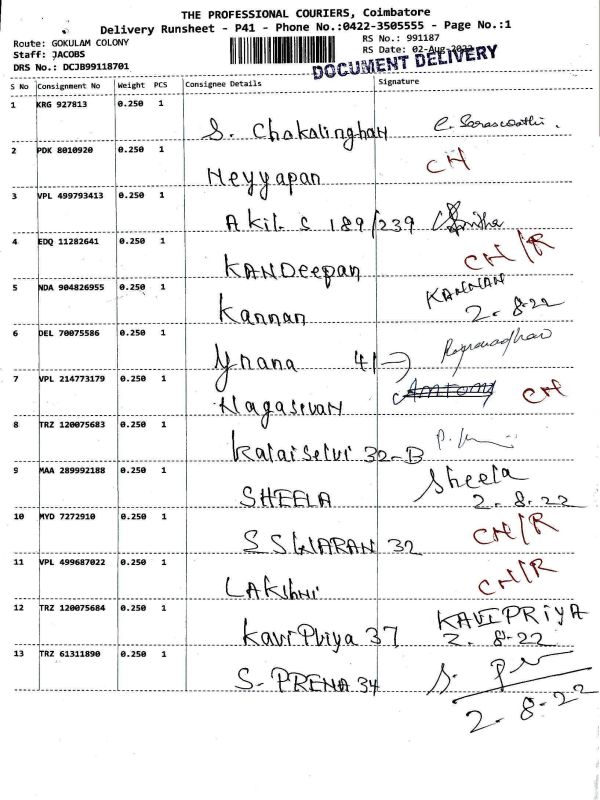 THE PROFESSIONAL COURIERS, Coimbatore
Delivery Runsheet - P41 - Phone No.:0422-3505555 - Page No.:1
Route: GOKULAM COLONY
RS No.: 991187
Staff: JACOBS
RS Date: 02-Aug-2022
DRS No.: DCJB99118701
DOCUMENT DELIVERY
S No Consignment No Weight PCS Consignee Details Signature
1 KRG 927813 0.250 1
S. Chokalinghan C. Saraswathi.
2 PDK 8010920 0.250 1 CH
Neyyapan
3 VPL 499793413 0.250 1
Akil S 189/239
4 EDQ 11282641 0.250 1 CH/R
KANDeepan
5 NDA 904826955 0.250 1 KANNAN
Kannan 2.8-22
6 DEL 70075586 0.250 1
Ynana 41
7 VPL 214773179 0.250 1 Antony CH
Nagasivan
8 TRZ 120075683 0.250 1
Kalaiselvi 32-B
9 MAA 289992188 0.250 1 Sheela
SHEELA 2.8.22
10 MYD 7272910 0.250 1 CH/R
SSWARAN 32
11 VPL 499687022 0.250 1 CH/R
LAKSHNI
12 TRZ 120075684 0.250 1 KAVIPRIYA
KaviPriya 37 2.8-22
13 TRZ 61311890 0.250 1
S-PRENA 34 S.
2.8-22